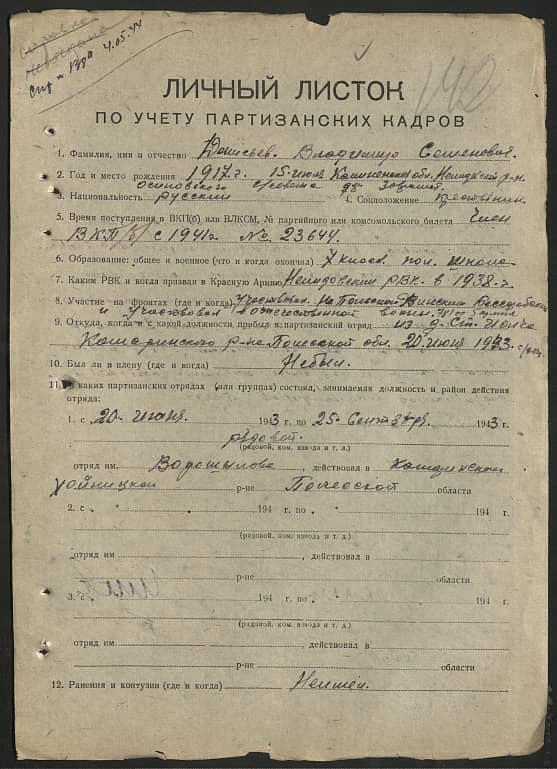 4.05.44
142
ЛИЧНЫЙ ЛИСТОК
ПО УЧЕТУ ПАРТИЗАНСКИХ КАДРОВ
1. Фамилия, имя и отчество Владимир Семенович.
2. Год и место рождения 1917 г. 15 июля Калининская обл. р-н.
3. Национальность русский 4. Соцположение Крестьянин.
5. Время поступления в ВКП(б) или ВЛКСМ, № партийного или комсомольского билета Член
ВКП/б/ с 1941 г. № 23644.
6. Образование: общее и военное (что и когда окончил) школа
7. Каким РВК и когда призван в Красную Армию РВК. в 1938 г.
8. Участие на фронтах (где и когда) Участвовал на
и Участвовал в отечественной войне
9. Откуда, когда и с какой должности прибыл в партизанский отряд из д.
р-на Полесской обл. 20 июня 1943
10. Был ли в плену (где и когда) Небыл.
11. В каких партизанских отрядах (или группах) состоял, занимаемая должность и район действия
отряда:
1. с 20 июня 1943 г. по 25 Сентября 1943 г.
рядовой.
(рядовой, ком. взвода и т. д.)
отряд им. Ворошилова, действовал в
Хойницкой р-не Полесской области
2. с 194 г. по 194 г.
(рядовой, ком. взвода и т. д.)
отряд им. , действовал в
р-не области
3. с 194 г. по 194 г.
(рядовой, ком. взвода и т. д.)
отряд им. , действовал в
р-не области
12. Ранения и контузии (где и когда) Неимел.